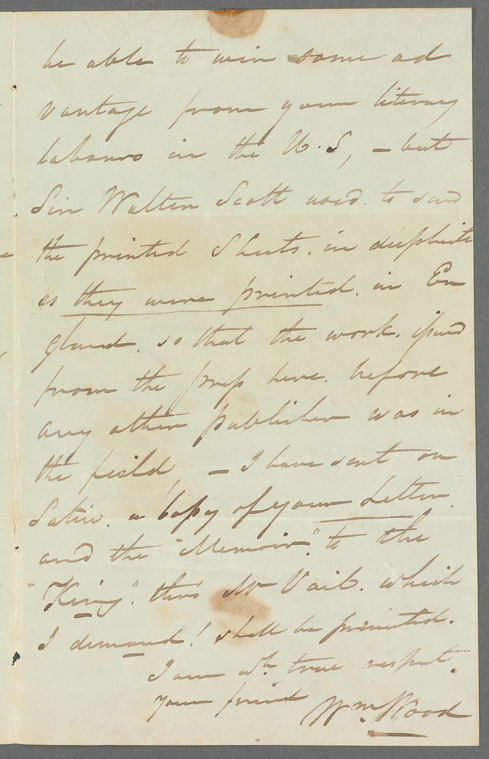 be able to win some ad
vantage from your literary
labours in the U.S, – but
Sir Walter Scott used. to send
the printed Sheets. in duplicate
as they were printed. in En
gland. so that the work. issued
from the press here. before
any other publisher was in
the field, – I have sent on
Satin. a Copy of your Letter.
and the "Memoir". to the
"King". thro' Mr Vail. which
I demand! shall be printed.
I am wth true respect.
your friend
Wm. Wood